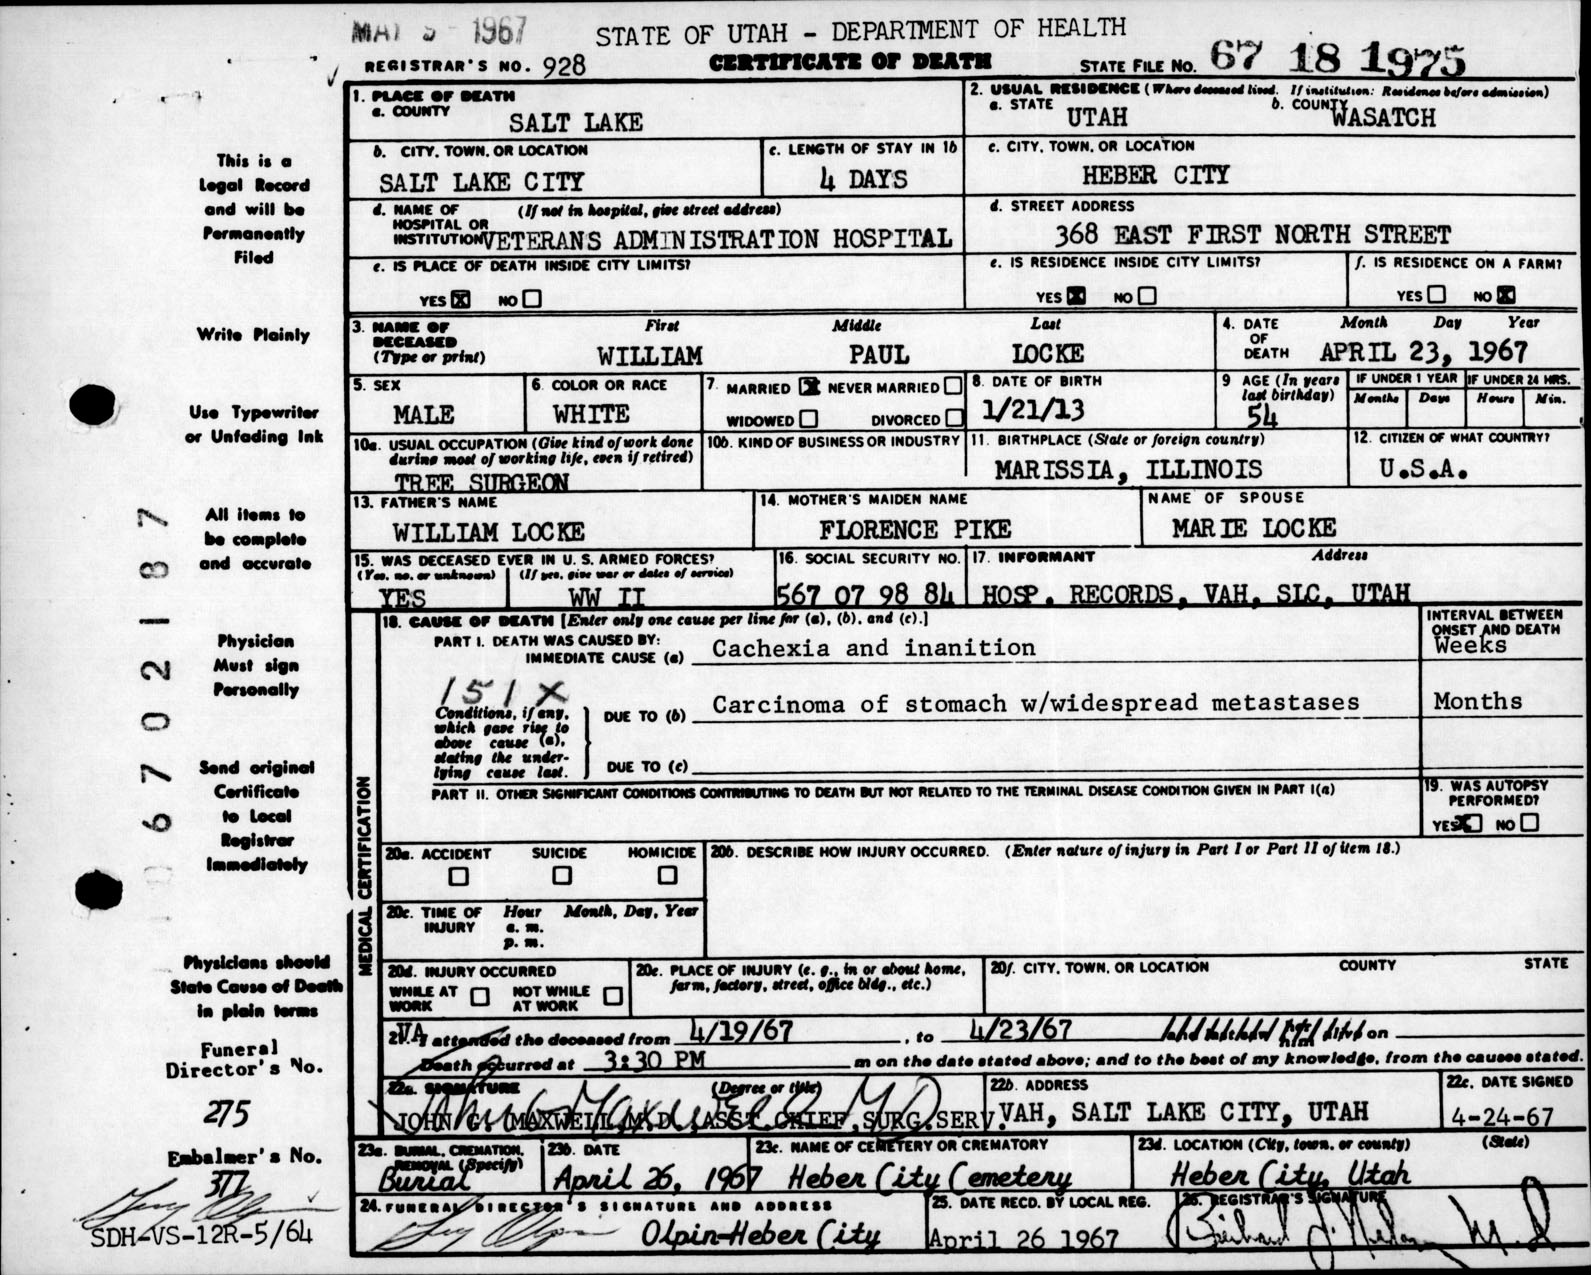 MAY 5 - 1967
STATE OF UTAH - DEPARTMENT OF HEALTH
REGISTRAR'S NO. 928
CERTIFICATE OF DEATH
STATE FILE NO. 67 18 1975
1. PLACE OF DEATH
a. COUNTY
SALT LAKE
2. USUAL RESIDENCE (Where deceased lived. If institution: Residence before admission)
a. STATE
UTAH
b. COUNTY
WASATCH
b. CITY, TOWN, OR LOCATION
SALT LAKE CITY
c. LENGTH OF STAY IN 1b
4 DAYS
c. CITY, TOWN, OR LOCATION
HEBER CITY
d. NAME OF HOSPITAL OR INSTITUTION
(If not in hospital, give street address)
VETERANS ADMINISTRATION HOSPITAL
d. STREET ADDRESS
368 EAST FIRST NORTH STREET
e. IS PLACE OF DEATH INSIDE CITY LIMITS?
YES X NO
e. IS RESIDENCE INSIDE CITY LIMITS?
YES X NO
f. IS RESIDENCE ON A FARM?
YES NO X
3. NAME OF DECEASED
(Type or print)
First Middle Last
WILLIAM PAUL LOCKE
4. DATE OF DEATH
Month Day Year
APRIL 23, 1967
5. SEX
MALE
6. COLOR OR RACE
WHITE
7. MARRIED X NEVER MARRIED
WIDOWED DIVORCED
8. DATE OF BIRTH
1/21/13
9 AGE (In years last birthday)
54
IF UNDER 1 YEAR
Months Days
IF UNDER 24 HRS.
Hours Min.
10a. USUAL OCCUPATION (Give kind of work done
during most of working life, even if retired)
TREE SURGEON
10b. KIND OF BUSINESS OR INDUSTRY
11. BIRTHPLACE (State or foreign country)
MARISSIA, ILLINOIS
12. CITIZEN OF WHAT COUNTRY?
U.S.A.
13. FATHER'S NAME
WILLIAM LOCKE
14. MOTHER'S MAIDEN NAME
FLORENCE PIKE
NAME OF SPOUSE
MARIE LOCKE
15. WAS DECEASED EVER IN U. S. ARMED FORCES?
(Yes, no, or unknown) (If yes, give war or dates of service)
YES WW II
16. SOCIAL SECURITY NO.
567 07 98 84
17. INFORMANT Address
HOSP. RECORDS, VAH, SLC, UTAH
18. CAUSE OF DEATH [Enter only one cause per line for (a), (b), and (c).]
PART I. DEATH WAS CAUSED BY:
IMMEDIATE CAUSE (a) Cachexia and inanition
INTERVAL BETWEEN ONSET AND DEATH
Weeks
151 X
Conditions, if any, which gave rise to above cause (a), stating the underlying cause last.
DUE TO (b) Carcinoma of stomach w/widespread metastases
Months
DUE TO (c)
PART II. OTHER SIGNIFICANT CONDITIONS CONTRIBUTING TO DEATH BUT NOT RELATED TO THE TERMINAL DISEASE CONDITION GIVEN IN PART I(a)
19. WAS AUTOPSY PERFORMED?
YES X NO
MEDICAL CERTIFICATION
20a. ACCIDENT SUICIDE HOMICIDE
20b. DESCRIBE HOW INJURY OCCURRED. (Enter nature of injury in Part I or Part II of item 18.)
20c. TIME OF INJURY
Hour Month, Day, Year
a. m.
p. m.
20d. INJURY OCCURRED
WHILE AT WORK NOT WHILE AT WORK
20e. PLACE OF INJURY (e. g., in or about home,
farm, factory, street, office bldg., etc.)
20f. CITY, TOWN, OR LOCATION COUNTY STATE
21. VA attended the deceased from 4/19/67, to 4/23/67 on
Death occurred at 3:30 PM m on the date stated above; and to the best of my knowledge, from the causes stated.
22a. SIGNATURE (Degree or title)
JOHN G. MAXWELL M.D. ASST CHIEF SURG.SERV.
22b. ADDRESS
VAH, SALT LAKE CITY, UTAH
22c. DATE SIGNED
4-24-67
23a. BURIAL, CREMATION, REMOVAL (Specify)
Burial
23b. DATE
April 26, 1967
23c. NAME OF CEMETERY OR CREMATORY
Heber City Cemetery
23d. LOCATION (City, town, or county) (State)
Heber City, Utah
24. FUNERAL DIRECTOR'S SIGNATURE AND ADDRESS
Olpin-Heber City
25. DATE RECD. BY LOCAL REG.
April 26 1967
26. REGISTRAR'S SIGNATURE
M.D.
This is a
Legal Record
and will be
Permanently
Filed
Write Plainly
Use Typewriter
or Unfading Ink
All items to
be complete
and accurate
Physician
Must sign
Personally
Send original
Certificate
to Local
Registrar
Immediately
Physicians should
State Cause of Death
in plain terms
Funeral
Director's No.
275
Embalmer's No.
377
SDH-VS-12R-5/64
67702187